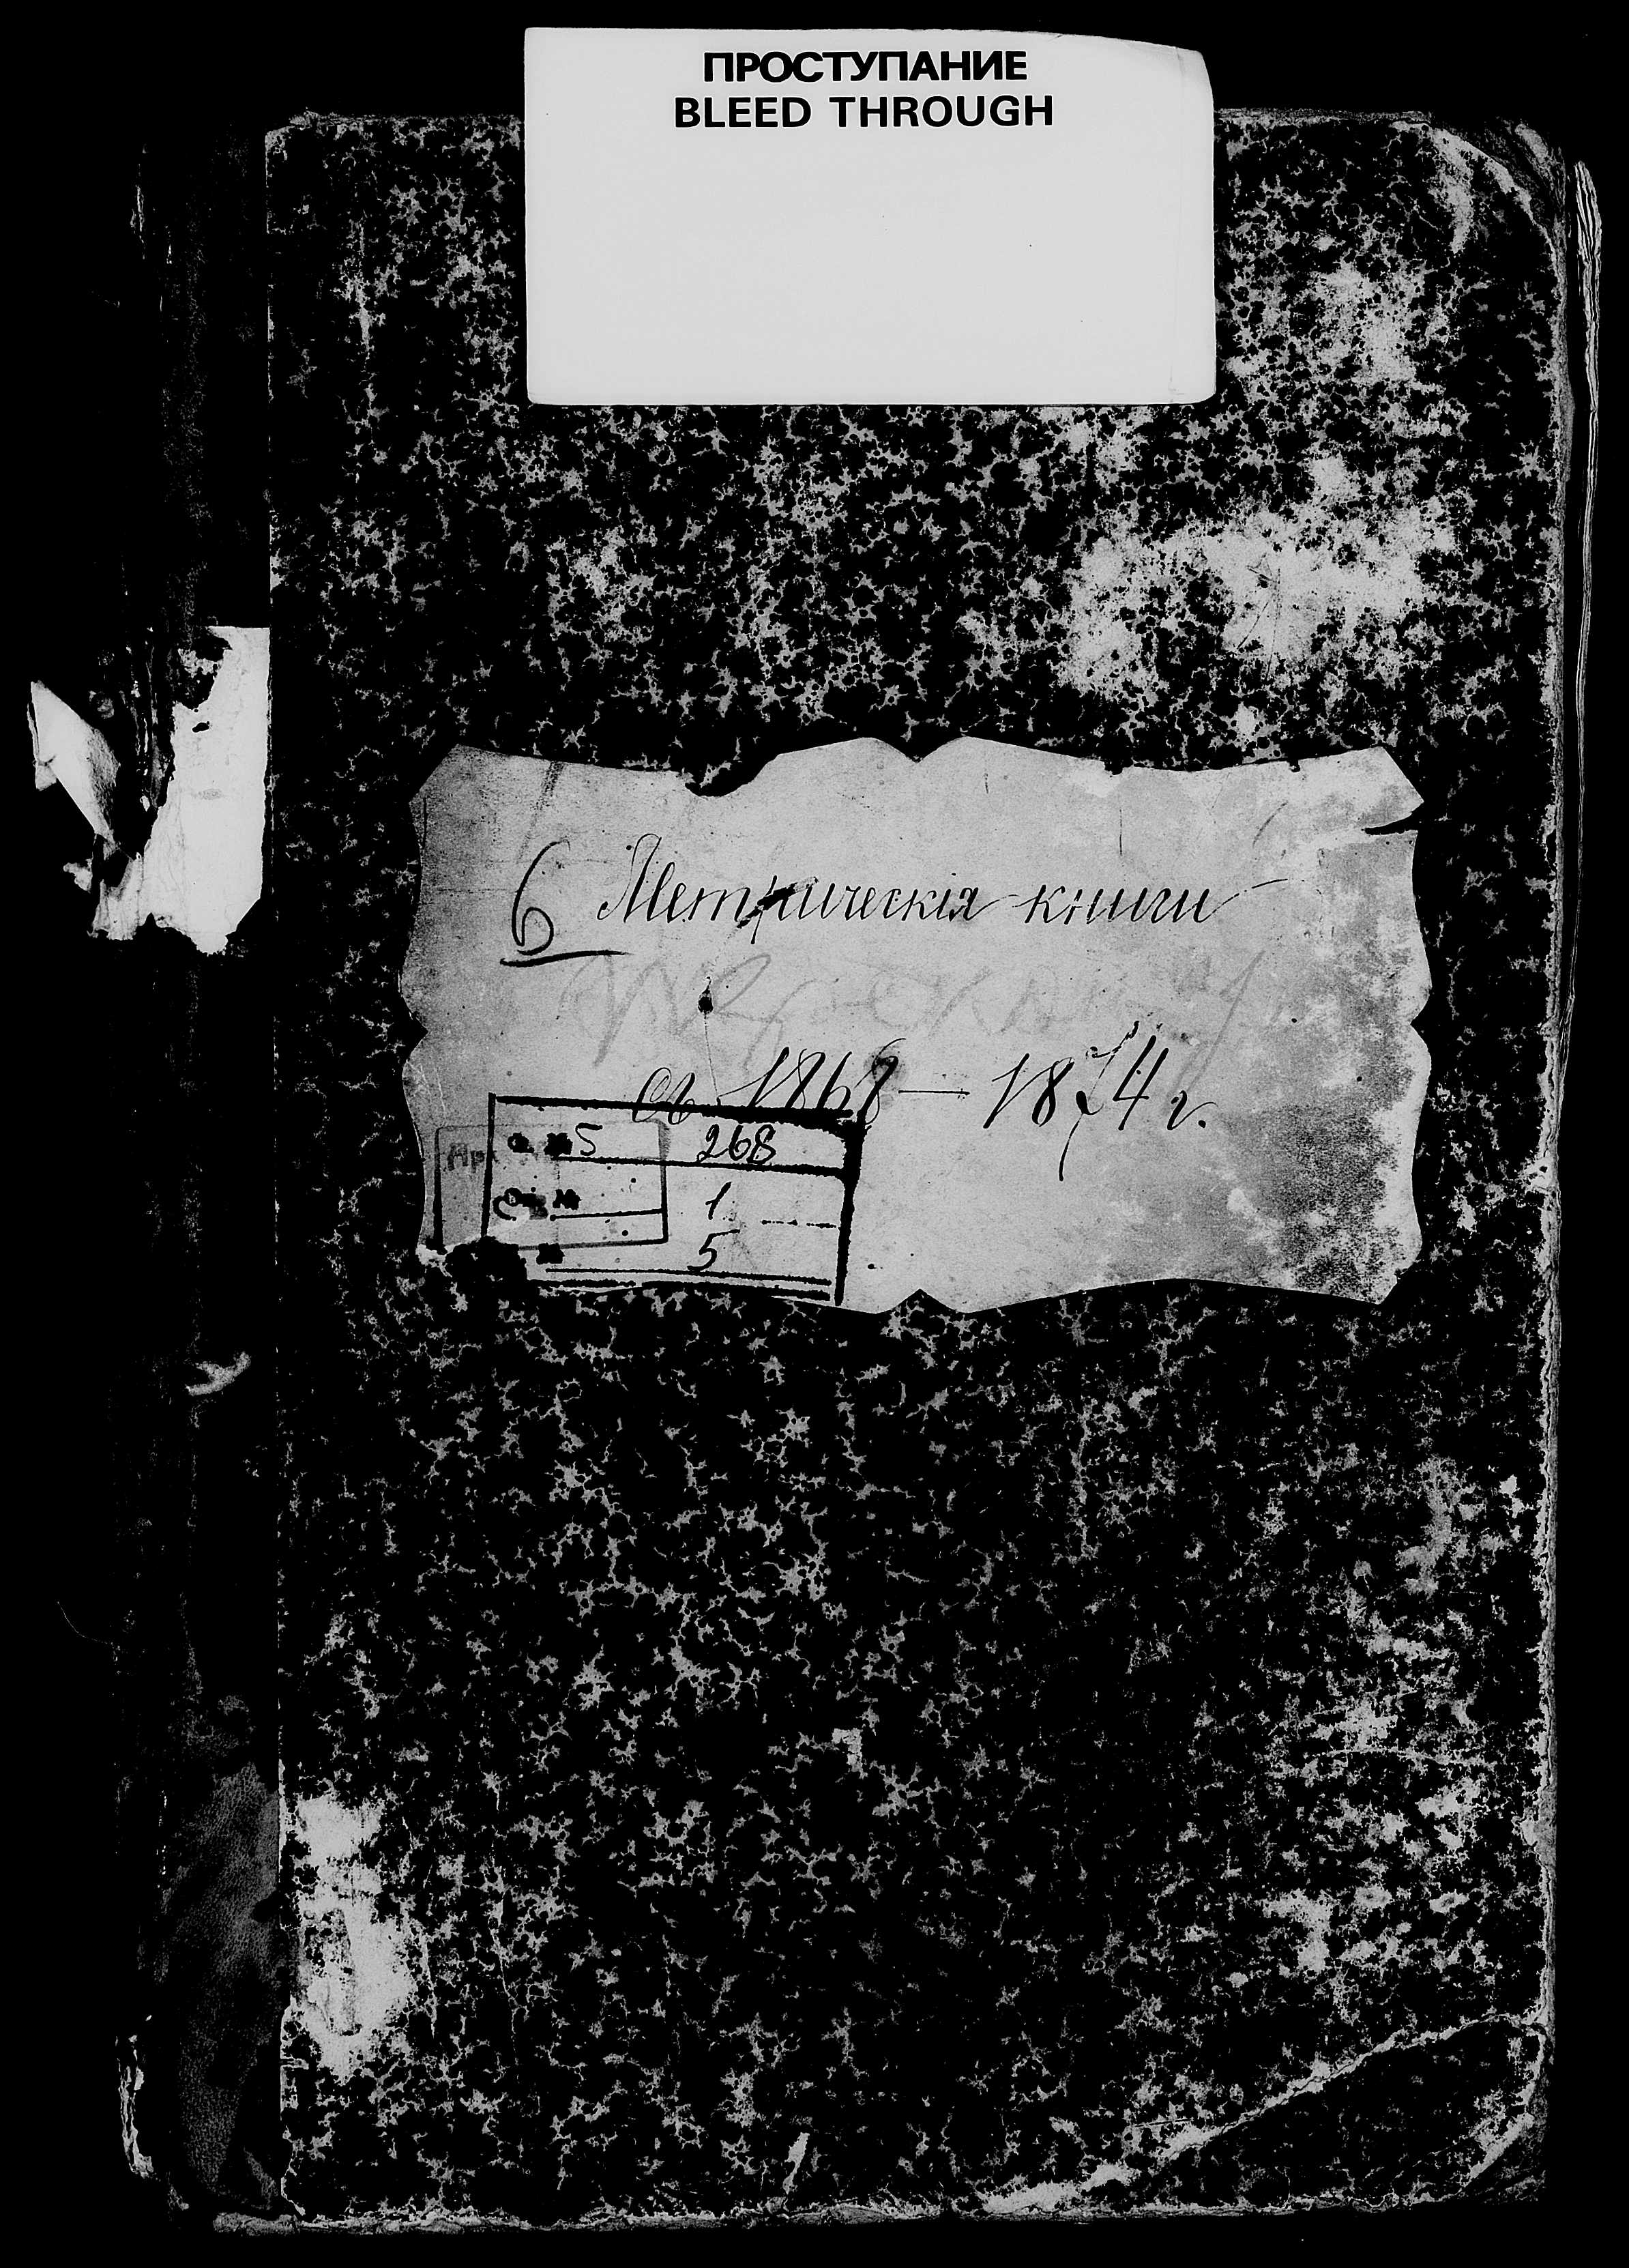 ПРОСТУПАНИЕ
BLEED THROUGH
6 Метрическія книги
съ 1868 — 1874 г.
Ф. № 5 268
Оп. № 1
№ 5